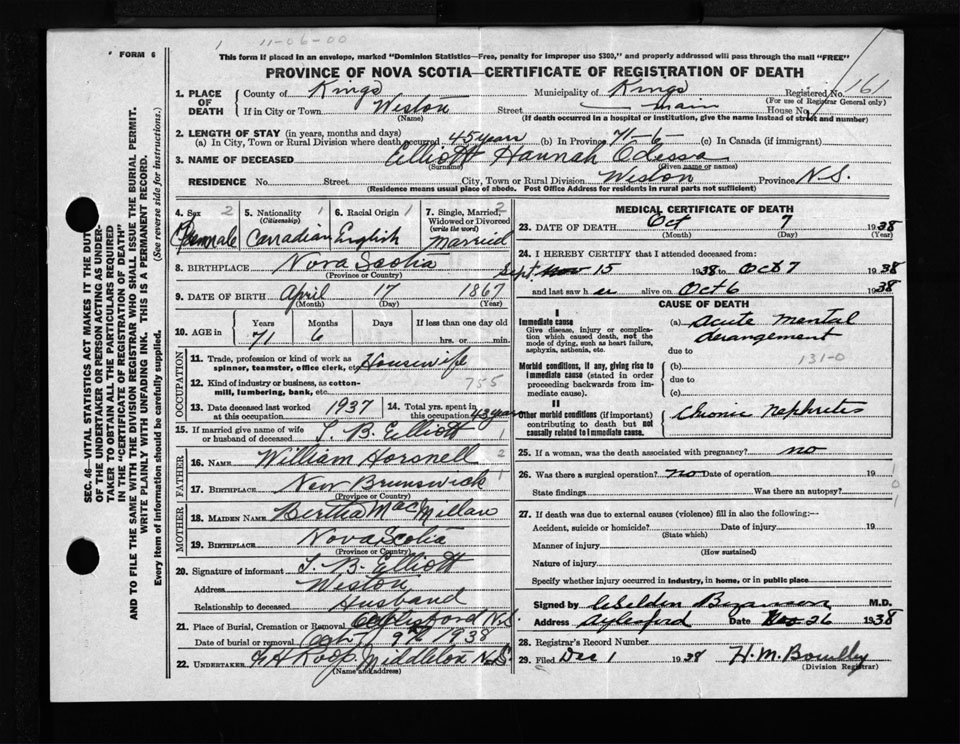 1 11-06-00
FORM 6
This form if placed in an envelope, marked "Dominion Statistics—Free, penalty for improper use $300," and properly addressed will pass through the mail "FREE"
PROVINCE OF NOVA SCOTIA—CERTIFICATE OF REGISTRATION OF DEATH
1. PLACE OF DEATH
County of Kings Municipality of Kings Registered No. 161
(For use of Registrar General only)
If in City or Town Weston Street Main House No.
(Name) (If death occurred in a hospital or institution, give the name instead of street and number)
2. LENGTH OF STAY (in years, months and days)
(a) In City, Town or Rural Division where death occurred 45 years (b) In Province 71-6 (c) In Canada (if immigrant)
3. NAME OF DECEASED Elliott Hannah Odessa
(Surname) (Given name or names)
RESIDENCE No. Street City, Town or Rural Division Weston Province N.S.
(Residence means usual place of abode. Post Office Address for residents in rural parts not sufficient)
4. Sex 2 Female
5. Nationality 1 (Citizenship) Canadian
6. Racial Origin 1 English
7. Single, Married, 2 Widowed or Divorced (write the word) Married
8. BIRTHPLACE Nova Scotia
(Province or Country)
9. DATE OF BIRTH April 17 1867
(Month) (Day) (Year)
10. AGE in Years Months Days If less than one day old
71 6 hrs. or min.
OCCUPATION
11. Trade, profession or kind of work as spinner, teamster, office clerk, etc. Housewife
12. Kind of industry or business, as cotton-mill, lumbering, bank, etc. 755
13. Date deceased last worked at this occupation 1937
14. Total yrs. spent in this occupation 43 years
15. If married give name of wife or husband of deceased T. B. Elliott 1
FATHER
16. NAME William Horsnell 2
17. BIRTHPLACE New Brunswick 1
(Province or Country)
MOTHER
18. MAIDEN NAME Bertha MacMillan
19. BIRTHPLACE Nova Scotia
(Province or Country)
20. Signature of informant T. B. Elliott
Address Weston
Relationship to deceased Husband
21. Place of Burial, Cremation or Removal Aylesford N.S.
Date of burial or removal Oct 9th 1938
22. UNDERTAKER Roop Middleton N.S.
(Name and address)
MEDICAL CERTIFICATE OF DEATH
23. DATE OF DEATH Oct 7 1938
(Month) (Day) (Year)
24. I HEREBY CERTIFY that I attended deceased from:
Sept. Nov 15 1938 to Oct 7 1938
and last saw her alive on Oct 6 1938
CAUSE OF DEATH
I
Immediate cause
Give disease, injury or complication which caused death, not the mode of dying, such as heart failure, asphyxia, asthenia, etc.
(a) Acute Mental derangement
due to
131-0
Morbid conditions, if any, giving rise to immediate cause (stated in order proceeding backwards from immediate cause).
(b)
due to
(c)
II
Other morbid conditions (if important) contributing to death but not causally related to immediate cause.
Chronic Nephritis
25. If a woman, was the death associated with pregnancy? no
26. Was there a surgical operation? no Date of operation 19
State findings Was there an autopsy?
1
0
1
27. If death was due to external causes (violence) fill in also the following:—
Accident, suicide or homicide? Date of injury 19
(State which)
Manner of injury
(How sustained)
Nature of injury
Specify whether injury occurred in industry, in home, or in public place
Signed by Weldon Bezanson M.D.
Address Aylesford Date Nov 26 1938
28. Registrar's Record Number
29. Filed Dec 1 1938
(Division Registrar)
SEC. 46—VITAL STATISTICS ACT MAKES IT THE DUTY
OF THE UNDERTAKER OR PERSON ACTING AS UNDER-
TAKER TO OBTAIN ALL THE PARTICULARS REQUIRED
IN THE "CERTIFICATE OF REGISTRATION OF DEATH"
AND TO FILE THE SAME WITH THE DIVISION REGISTRAR WHO SHALL ISSUE THE BURIAL PERMIT.
WRITE PLAINLY WITH UNFADING INK. THIS IS A PERMANENT RECORD.
Every item of information should be carefully supplied. (See reverse side for instructions.)